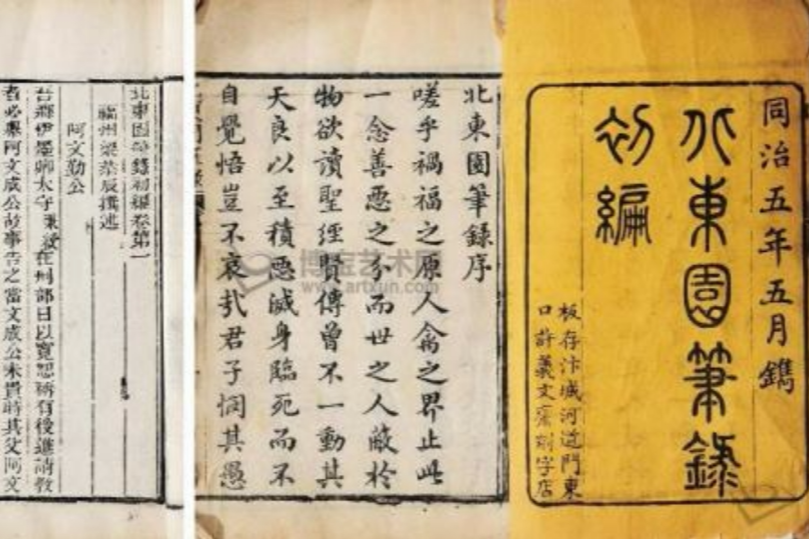 同治五年五月鐫
北東園筆錄
初編
板存汴城河道門東
口許義文齋刻字店
北東園筆錄序
嗟乎禍福之原人禽之界止此
一念善惡之分而世之人蔽於
物欲讀聖經賢傳曾不一動其
天良以至積惡滅身臨死而不
自覺悟豈不哀哉君子憫其愚
北東園筆錄初編卷第一
福州梁恭辰撰述
阿文勤公
吾鄉伊墨卿太守秉綬在刑部日以寬恕稱有後進請教
者必舉阿文成公故事告之當文成公未貴時其父阿文
博宝艺术网
www.artxun.com